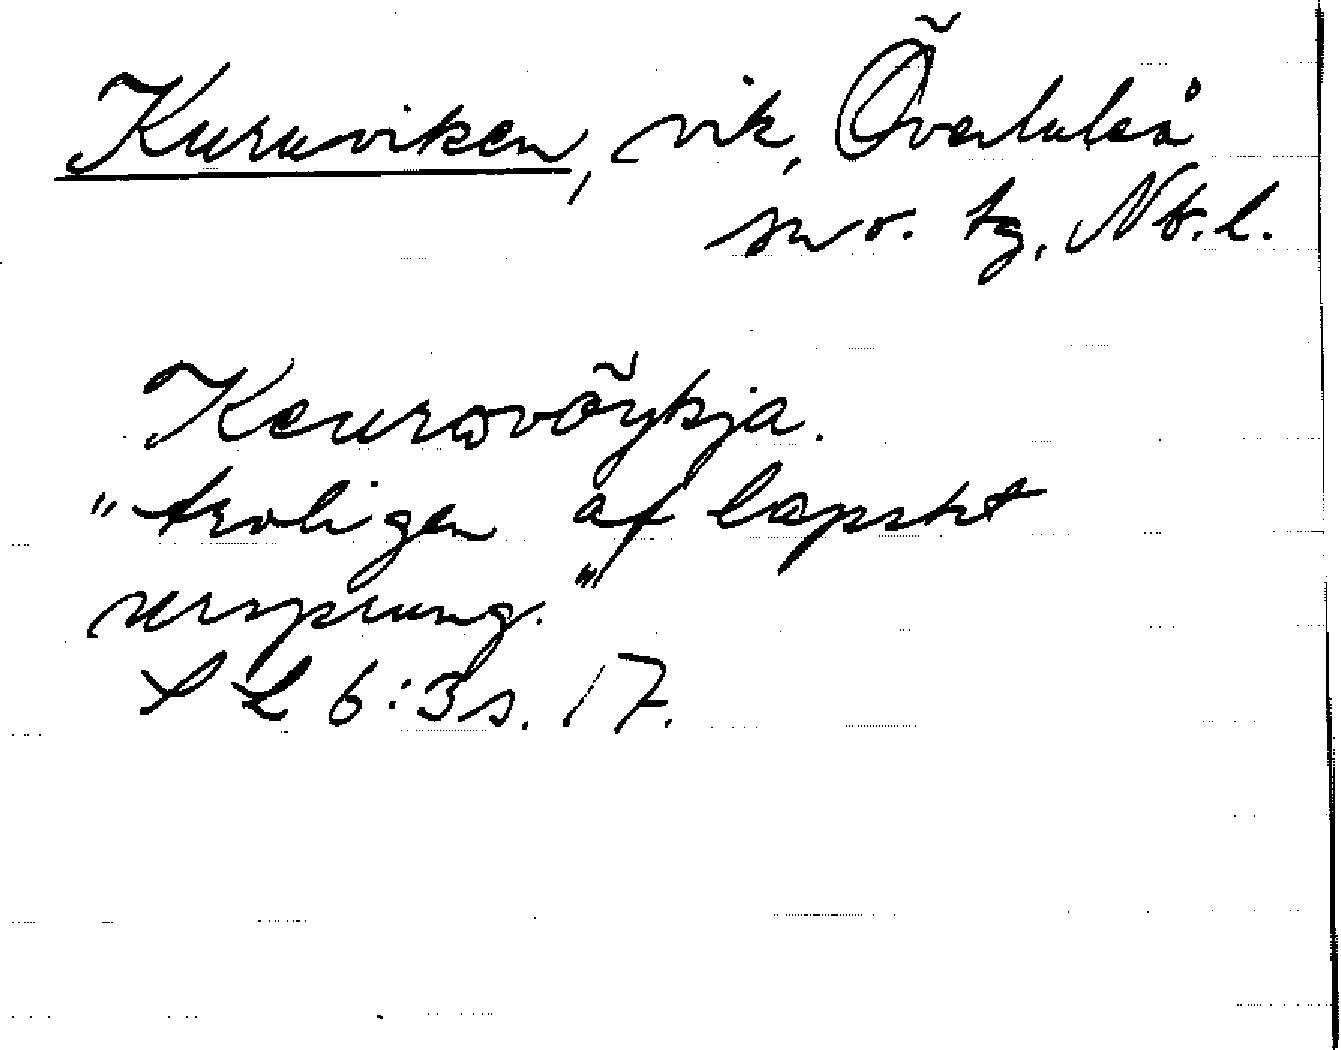 Kuruviken, vik, Överluleå
sn o. tg, Nb. l.
Keurωvöykja.
"troligen af lapskt
ursprung."
S L 6:3 s. 17.